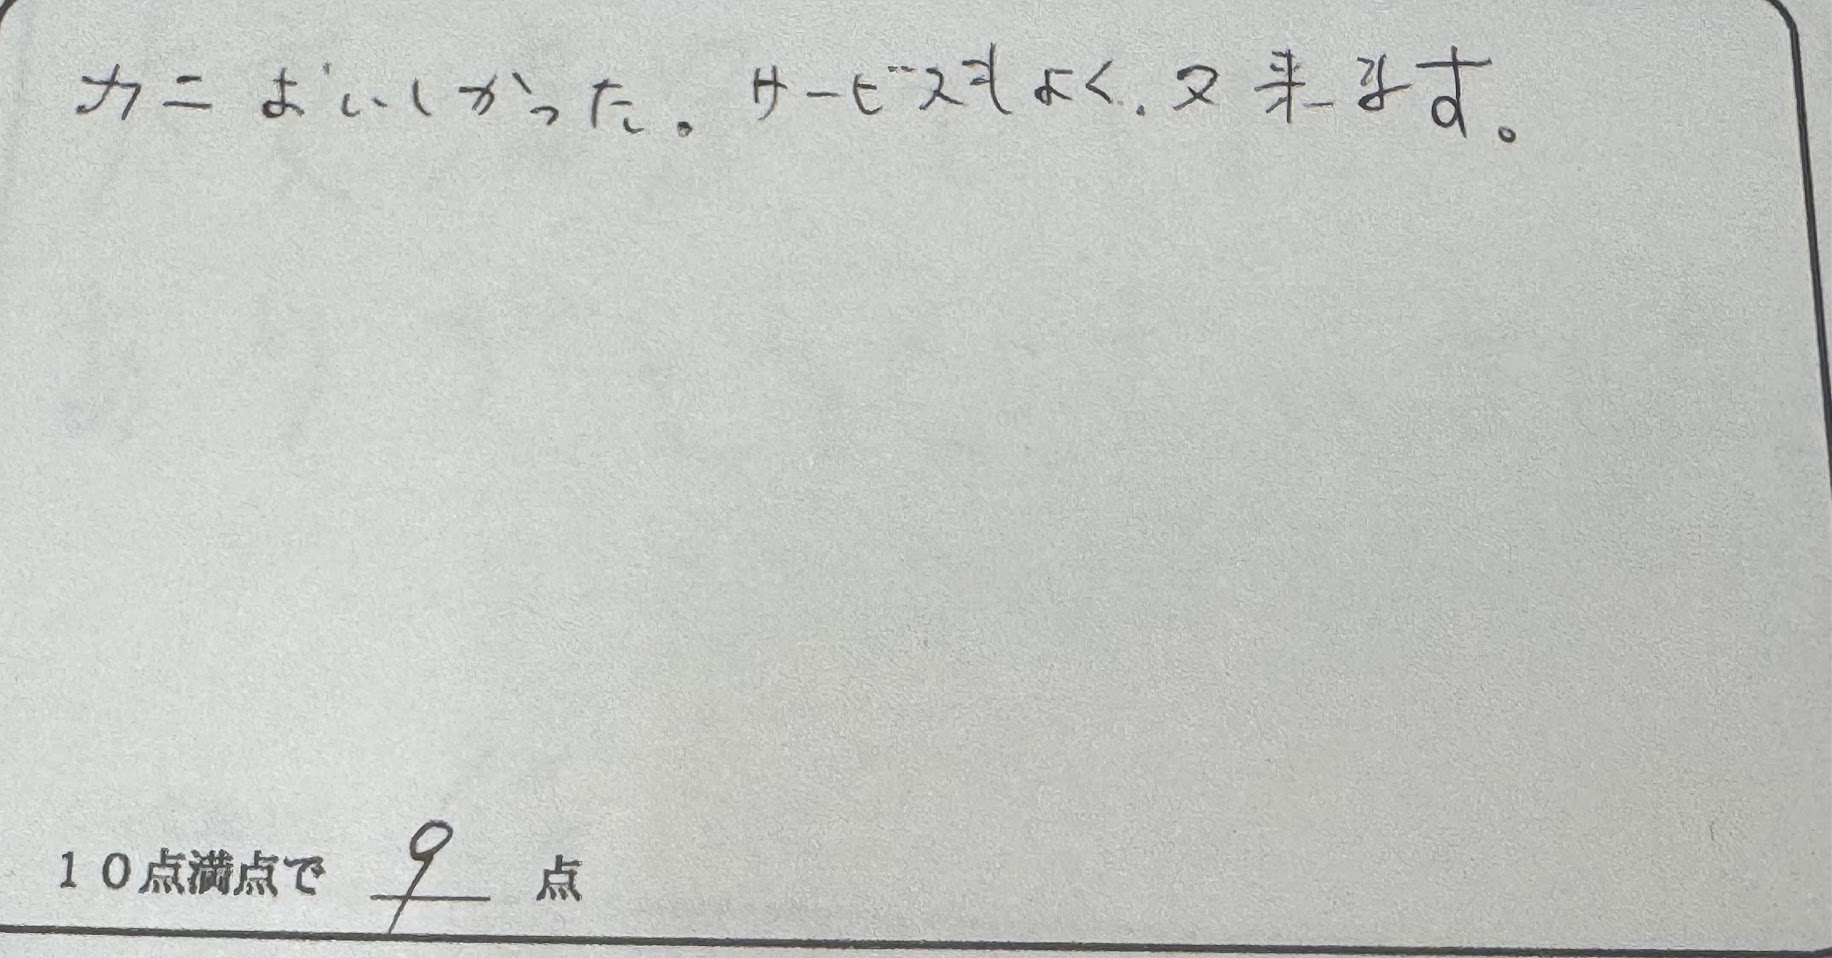 カニおいしかった。サービスもよく、又来ます。
10点満点で 9 点